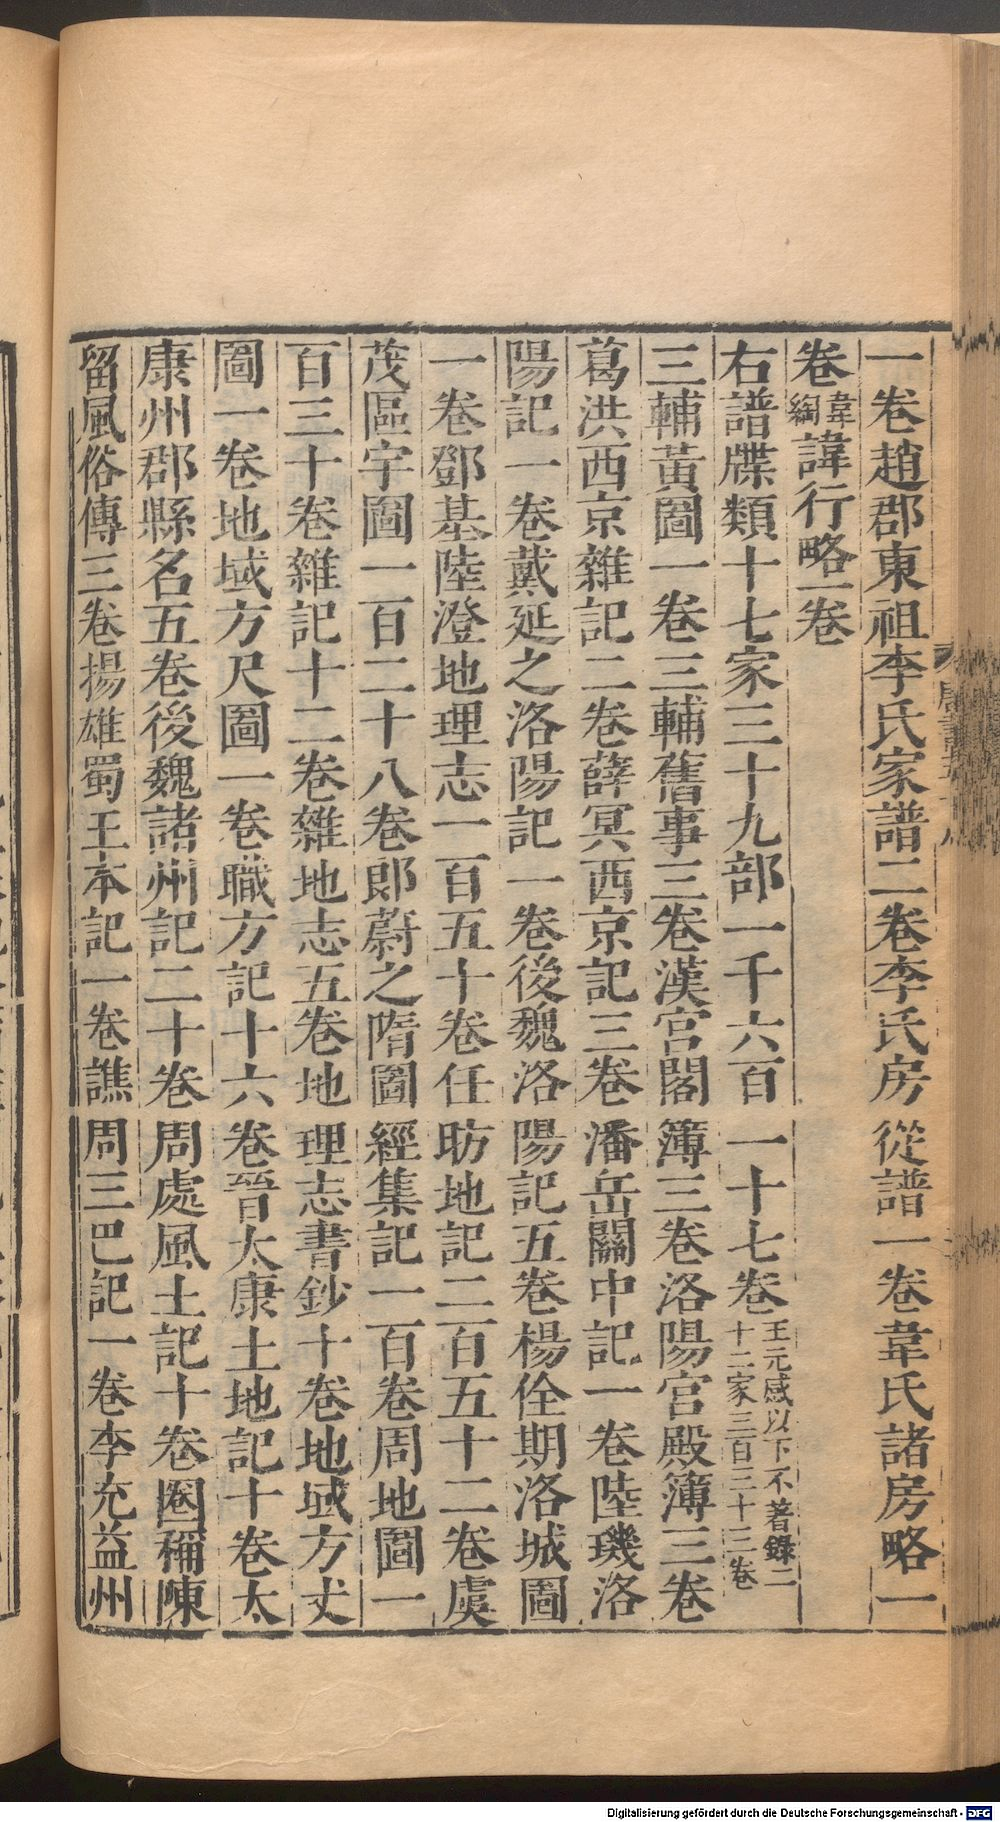 一卷趙郡東祖李氏家譜二卷李氏房從譜一卷韋氏諸房略一
卷韋綯諱行略一卷
右譜牒類十七家三十九部一千六百一十七卷王元感以下不著錄二十二家三百三十三卷
三輔黃圖一卷三輔舊事三卷漢宮閣簿三卷洛陽宮殿簿三卷
葛洪西京雜記二卷薛冥西京記三卷潘岳關中記一卷陸璣洛
陽記一卷戴延之洛陽記一卷後魏洛陽記五卷楊佺期洛城圖
一卷鄧基陸澄地理志一百五十卷任昉地記二百五十二卷虞
茂區宇圖一百二十八卷郎蔚之隋圖經集記一百卷周地圖一
百三十卷雜記十二卷雜地志五卷地理志書鈔十卷地域方丈
圖一卷地域方尺圖一卷職方記十六卷晉太康土地記十卷太
康州郡縣名五卷後魏諸州記二十卷周處風土記十卷圈稱陳
留風俗傳三卷揚雄蜀王本記一卷譙周三巴記一卷李充益州
Digitalisierung gefördert durch die Deutsche Forschungsgemeinschaft - DFG